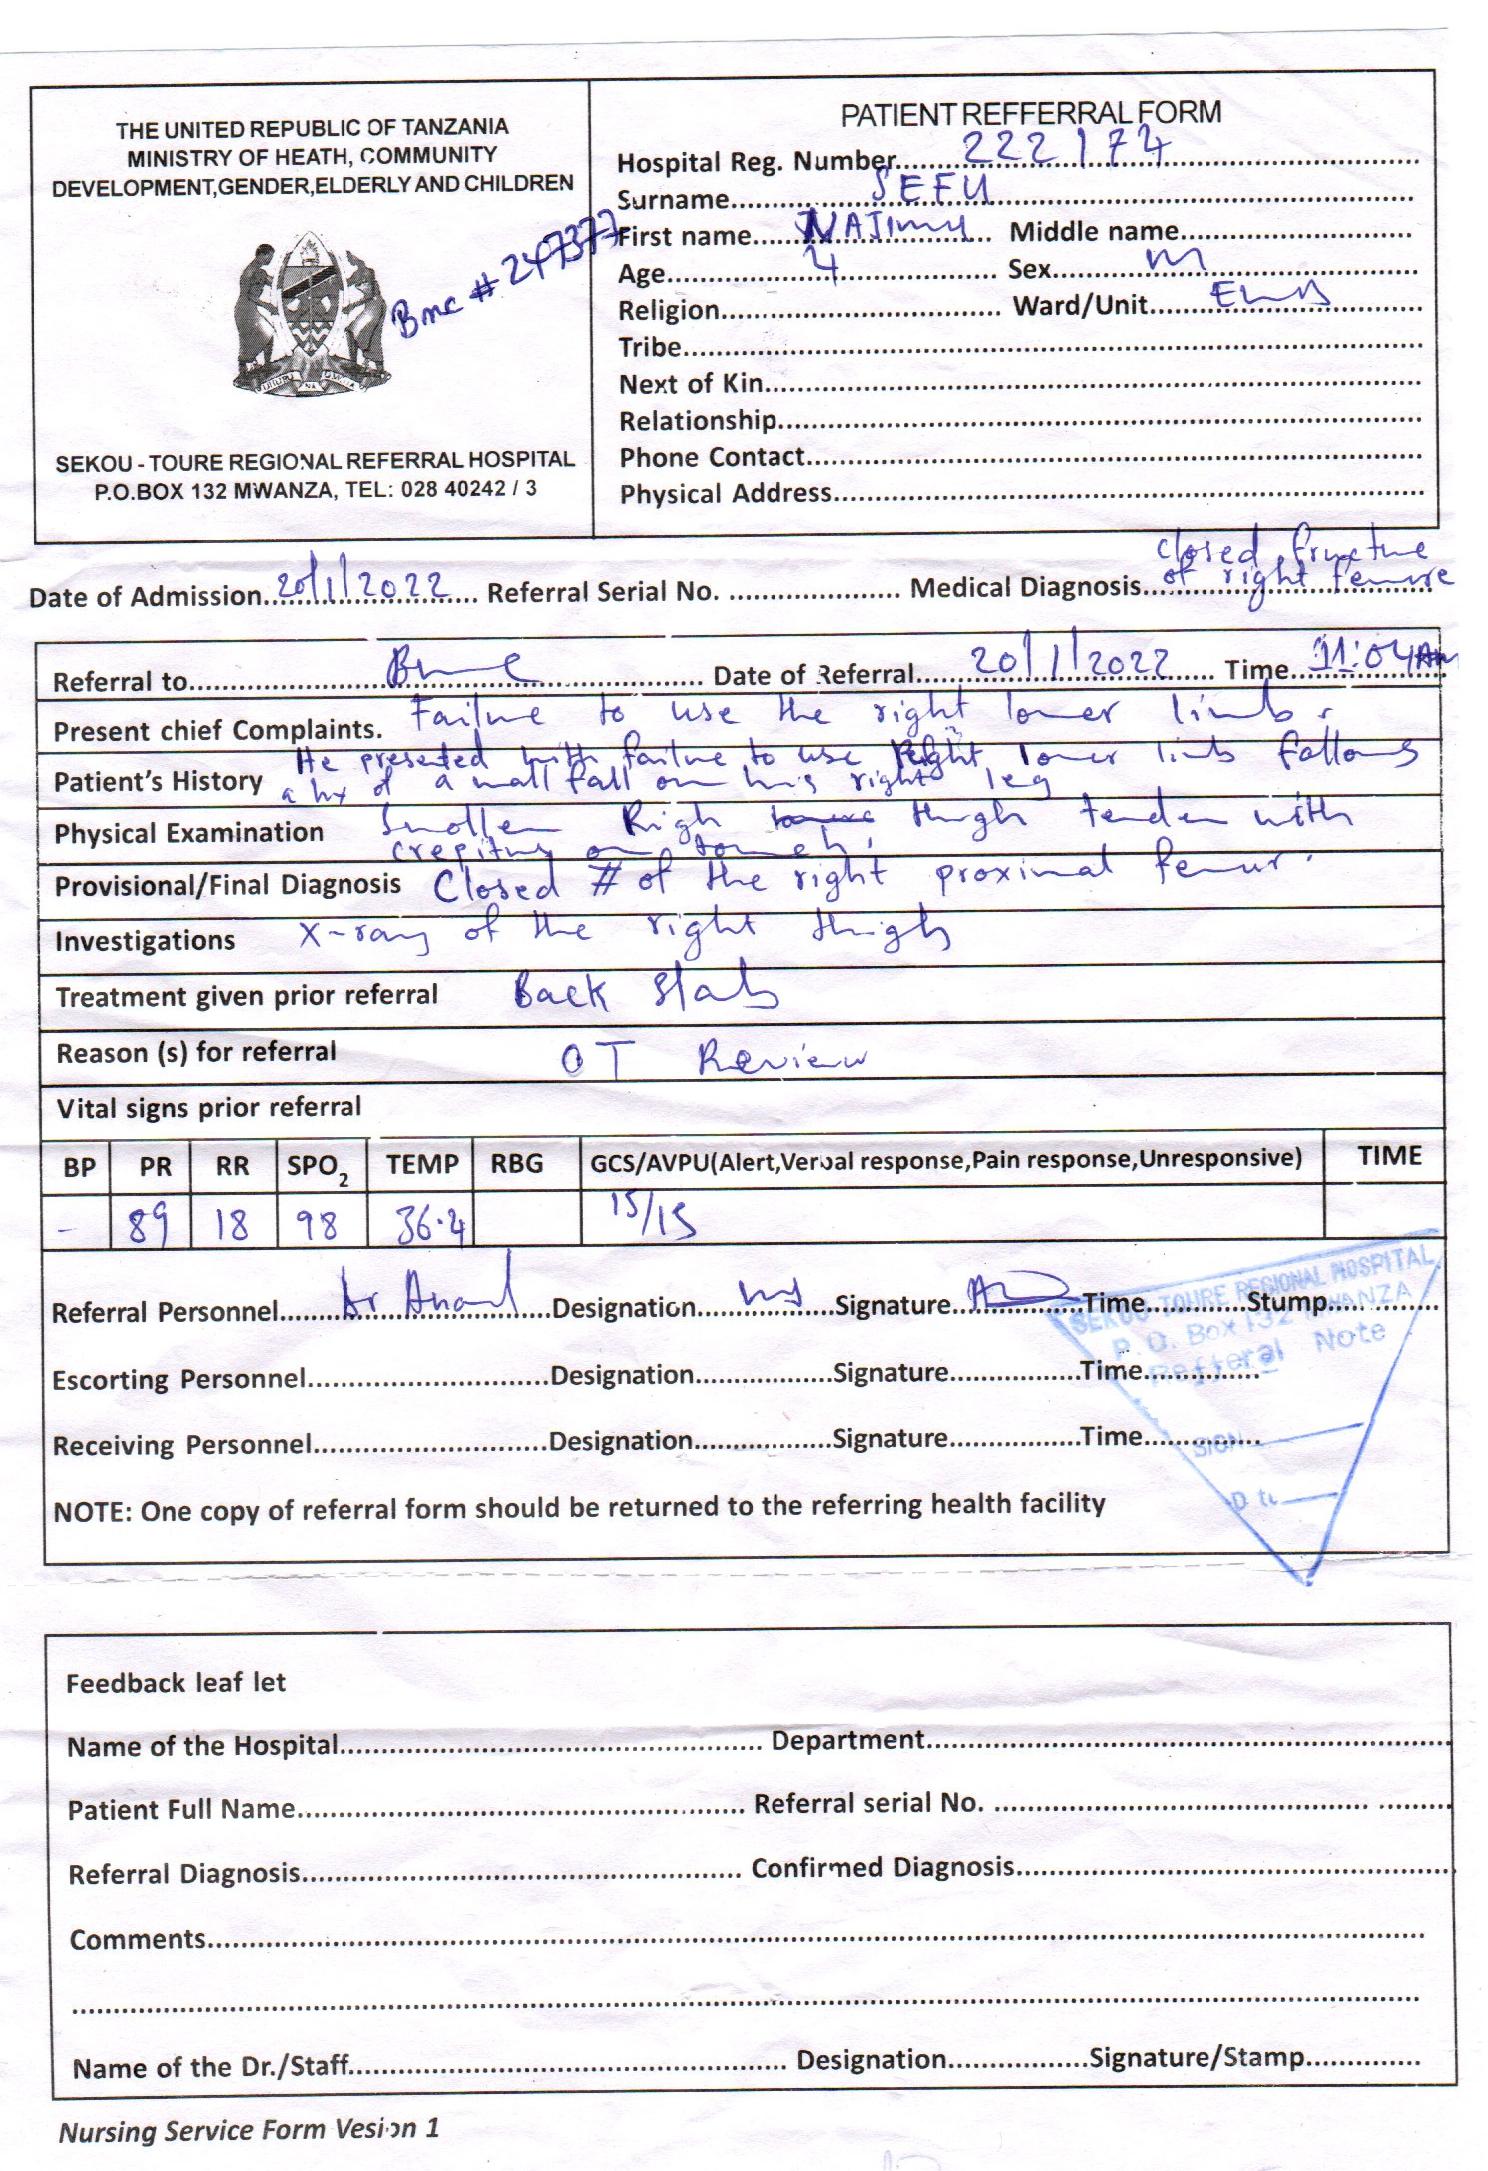 THE UNITED REPUBLIC OF TANZANIA
MINISTRY OF HEATH, COMMUNITY
DEVELOPMENT,GENDER,ELDERLY AND CHILDREN
Bmc # 247377
SEKOU - TOURE REGIONAL REFERRAL HOSPITAL
P.O.BOX 132 MWANZA, TEL: 028 40242 / 3
PATIENT REFFERRAL FORM
Hospital Reg. Number 222174
Surname SEFU
First name NAJImu Middle name
Age 4 Sex m
Religion Ward/Unit
Tribe
Next of Kin
Relationship
Phone Contact
Physical Address
Date of Admission 20/1/2022 Referral Serial No. Medical Diagnosis closed fructure
of right femure
Referral to Bmc Date of Referral 20/1/2022 Time 11:04Am
Present chief Complaints. Failure to use the right lower limb.
Patient's History He presented with failure to use Right lower limb follows
a hx of a wall fall on his right leg
Physical Examination Swollen Righ thigh tender with
crepitus on touch.
Provisional/Final Diagnosis Closed # of the right proximal femur.
Investigations X-ray of the right thigh
Treatment given prior referral Back slab
Reason (s) for referral OT Review
Vital signs prior referral
BP PR RR SPO2 TEMP RBG GCS/AVPU(Alert,Verbal response,Pain response,Unresponsive) TIME
- 89 18 98 36.4 15/15
Referral Personnel Dr Designation Signature Time Stump
Escorting Personnel Designation Signature Time
Receiving Personnel Designation Signature Time
SEKOU TOURE REGIONAL HOSPITAL
P. O. Box 132 MWANZA
Refferal Note
SIGN
NOTE: One copy of referral form should be returned to the referring health facility
Feedback leaf let
Name of the Hospital Department
Patient Full Name Referral serial No.
Referral Diagnosis Confirmed Diagnosis
Comments
Name of the Dr./Staff Designation Signature/Stamp
Nursing Service Form Vesion 1